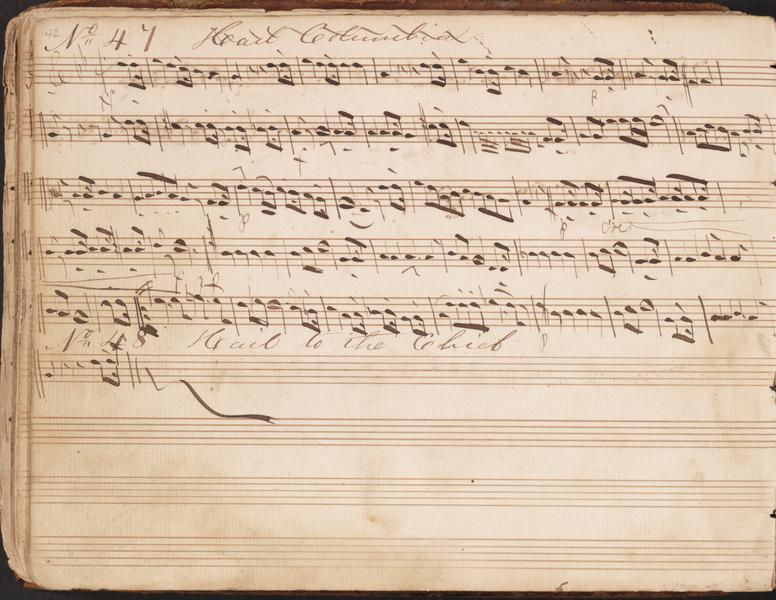 42 No 47 Hail Columbia
p
p
p cres
No 48 Hail to the Chief